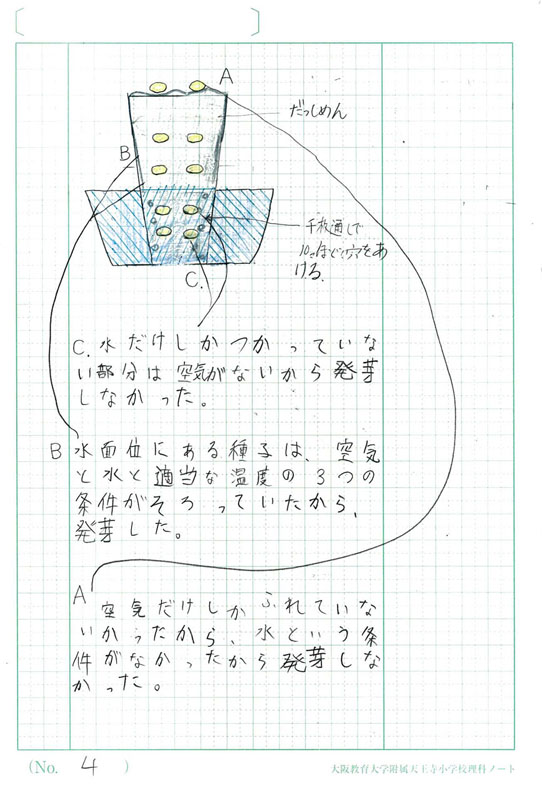 A
だっしめん
B
千枚通しで
10こほど穴をあ
ける.
C.
C. 水だけしかつかっていな
い部分は空気がないから発芽
しなかった。
B 水面位にある種子は、空気
と水と適当な温度の3つの
条件がそろっていたから、
発芽した。
A
空気だけしかふれていな
いかったから、水という条
件がなかったから発芽しな
かった。
(No. 4 )
大阪教育大学附属天王寺小学校理科ノート